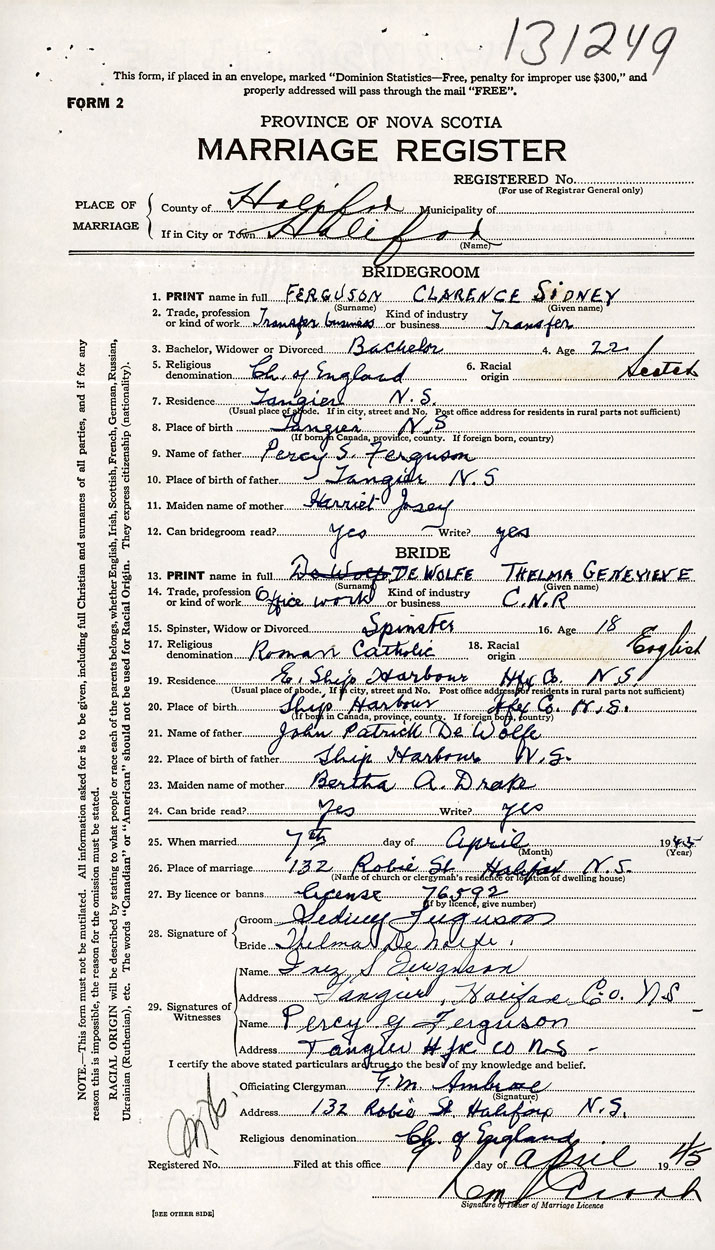 131249
This form, if placed in an envelope, marked "Dominion Statistics—Free, penalty for improper use $300," and
properly addressed will pass through the mail "FREE".
FORM 2
PROVINCE OF NOVA SCOTIA
MARRIAGE REGISTER
REGISTERED No.
(For use of Registrar General only)
PLACE OF MARRIAGE
County of Halifax Municipality of
If in City or Town Halifax
(Name)
BRIDEGROOM
1. PRINT name in full FERGUSON CLARENCE SIDNEY
(Surname) (Given name)
2. Trade, profession or kind of work Transfer business Kind of industry or business Transfer
3. Bachelor, Widower or Divorced Bachelor 4. Age 22
5. Religious denomination Ch. of England 6. Racial origin Scotch
7. Residence Tangier N.S.
(Usual place of abode. If in city, street and No. Post office address for residents in rural parts not sufficient)
8. Place of birth Tangier N.S
(If born in Canada, province, county. If foreign born, country)
9. Name of father Percy S. Ferguson
10. Place of birth of father Tangier N.S
11. Maiden name of mother Harriet Josey
12. Can bridegroom read? Yes Write? yes
BRIDE
13. PRINT name in full De Wolfe DE WOLFE THELMA GENEVIEVE
(Surname) (Given name)
14. Trade, profession or kind of work Office work Kind of industry or business C.N.R
15. Spinster, Widow or Divorced Spinster 16. Age 18
17. Religious denomination Roman Catholic 18. Racial origin English
19. Residence E. Ship Harbour Hfx Co. N.S.
(Usual place of abode. If in city, street and No. Post office address for residents in rural parts not sufficient)
20. Place of birth Ship Harbour Hfx Co. N.S.
(If born in Canada, province, county. If foreign born, country)
21. Name of father John Patrick De Wolfe
22. Place of birth of father Ship Harbour N.S.
23. Maiden name of mother Bertha A. Drake
24. Can bride read? Yes Write? yes
25. When married 7th day of April 1945
(Month) (Year)
26. Place of marriage 132 Robie St. Halifax N.S.
(Name of church or clergyman's residence or location of dwelling house)
27. By licence or banns license 76592
(If by licence, give number)
28. Signature of
Groom Sidney Ferguson
Bride Thelma De Wolfe.
29. Signatures of Witnesses
Name Inez S Ferguson
Address Tangier, Halifax Co. N S
Name Percy G Ferguson
Address Tangier Hfx Co N.S -
I certify the above stated particulars are true to the best of my knowledge and belief.
Officiating Clergyman G.M. Ambrose
(Signature)
Address 132 Robie St. Halifax N.S.
Religious denomination Ch. of England
Registered No. Filed at this office 9 day of April 1945
Signature of Issuer of Marriage Licence
[SEE OTHER SIDE]
NOTE.—This form must not be mutilated. All information asked for is to be given, including full Christian and surnames of all parties, and if for any
reason this is impossible, the reason for the omission must be stated.
RACIAL ORIGIN will be described by stating to what people or race each of the parents belongs, whether English, Irish, Scottish, French, German, Russian,
Ukrainian (Ruthenian), etc. The words "Canadian" or "American" should not be used for Racial Origin. They express citizenship (nationality).